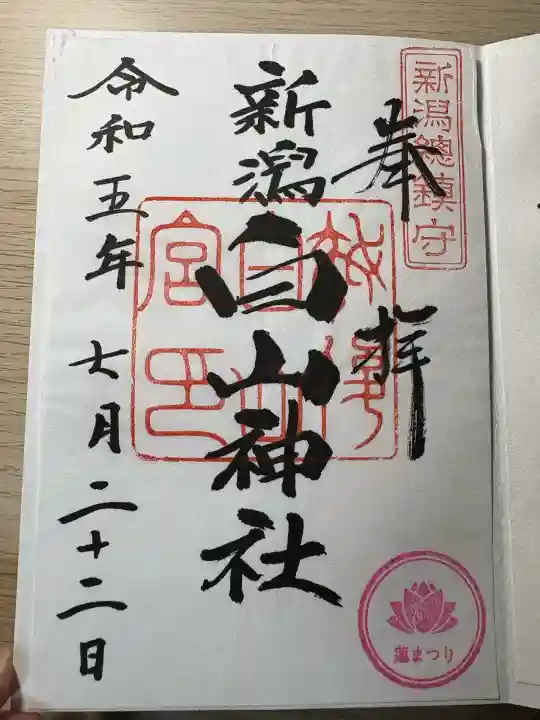 新潟總鎮守
奉拝
新潟白山神社
令和五年七月二十二日
蓮まつり